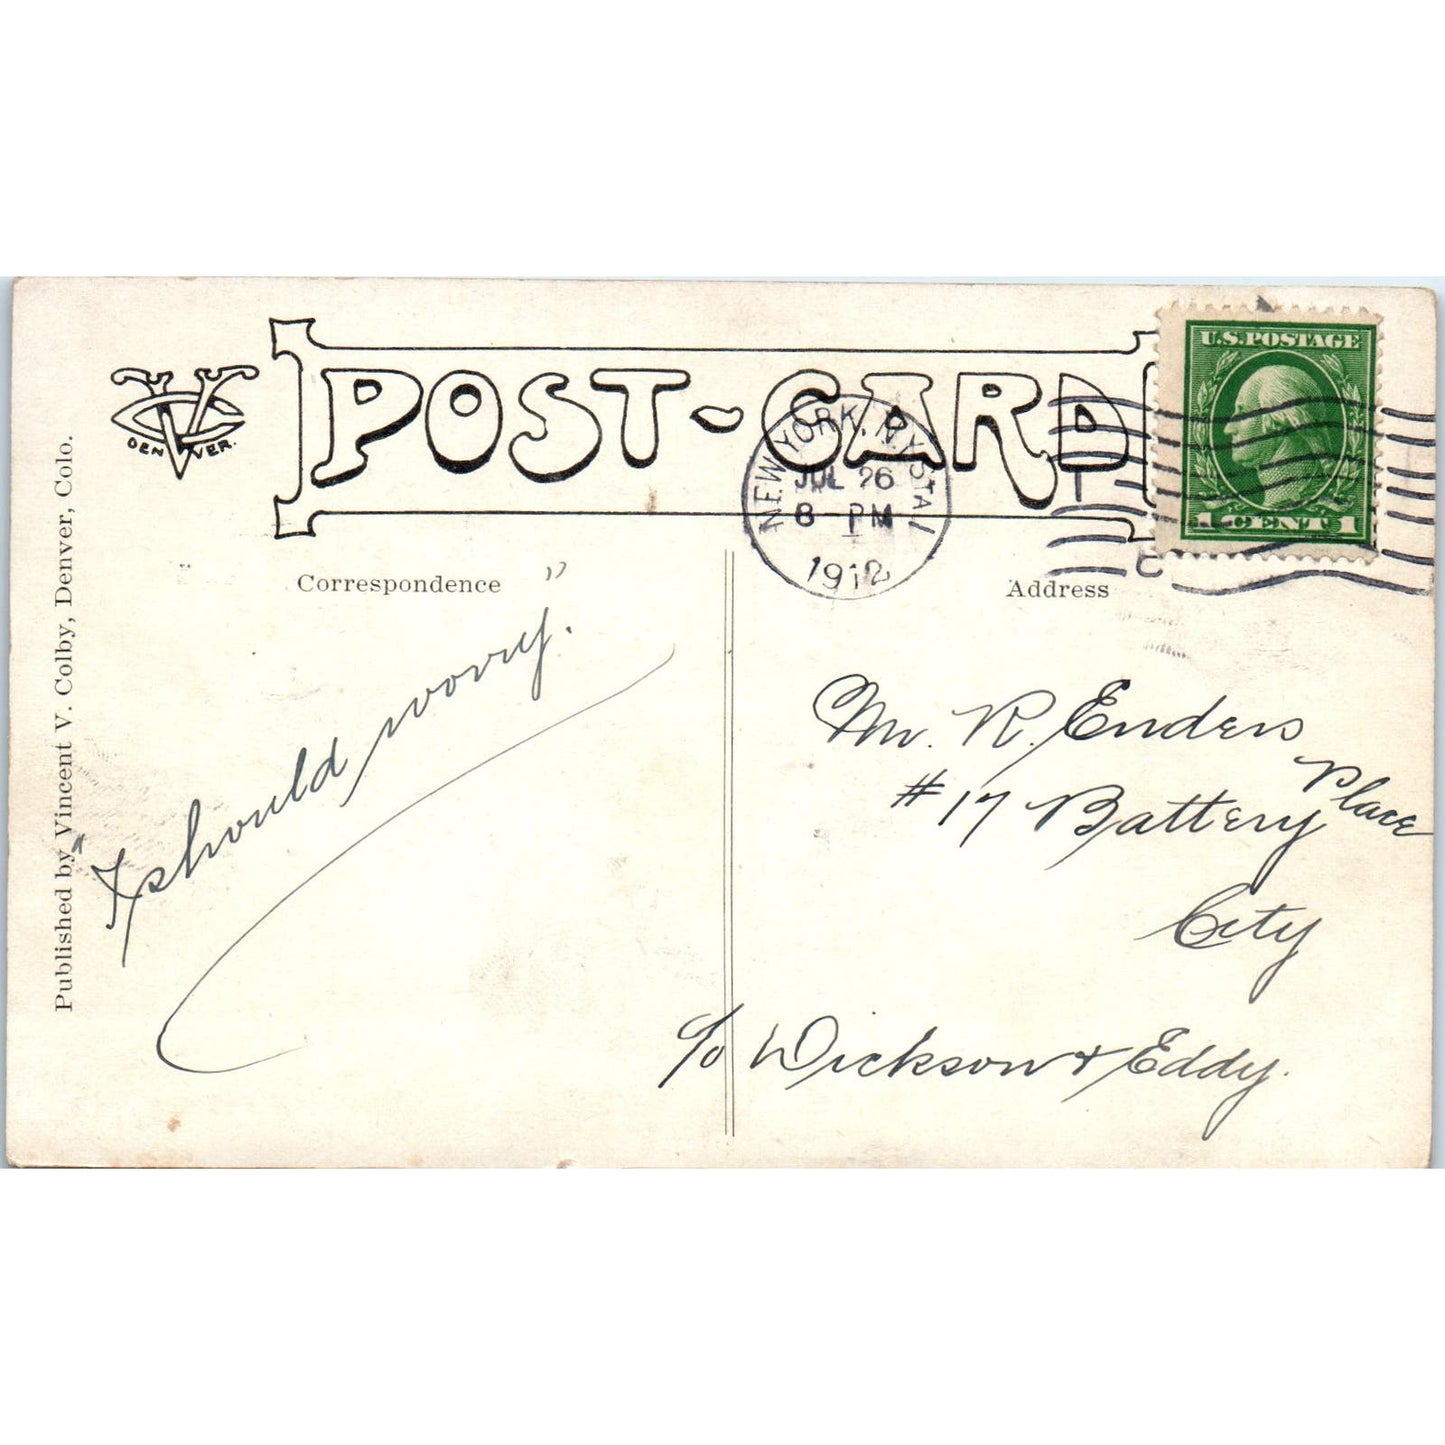 POST-CARD
VC
DENVER.
U.S. POSTAGE
1 CENT 1
NEW YORK, N.Y. STA.
JUL 26
8 - PM
1912
Correspondence
Address
Published by Vincent V. Colby, Denver, Colo.
"I should worry."
Mr. R. Enders
#17 Battery Place
City
c/o Dickson & Eddy.